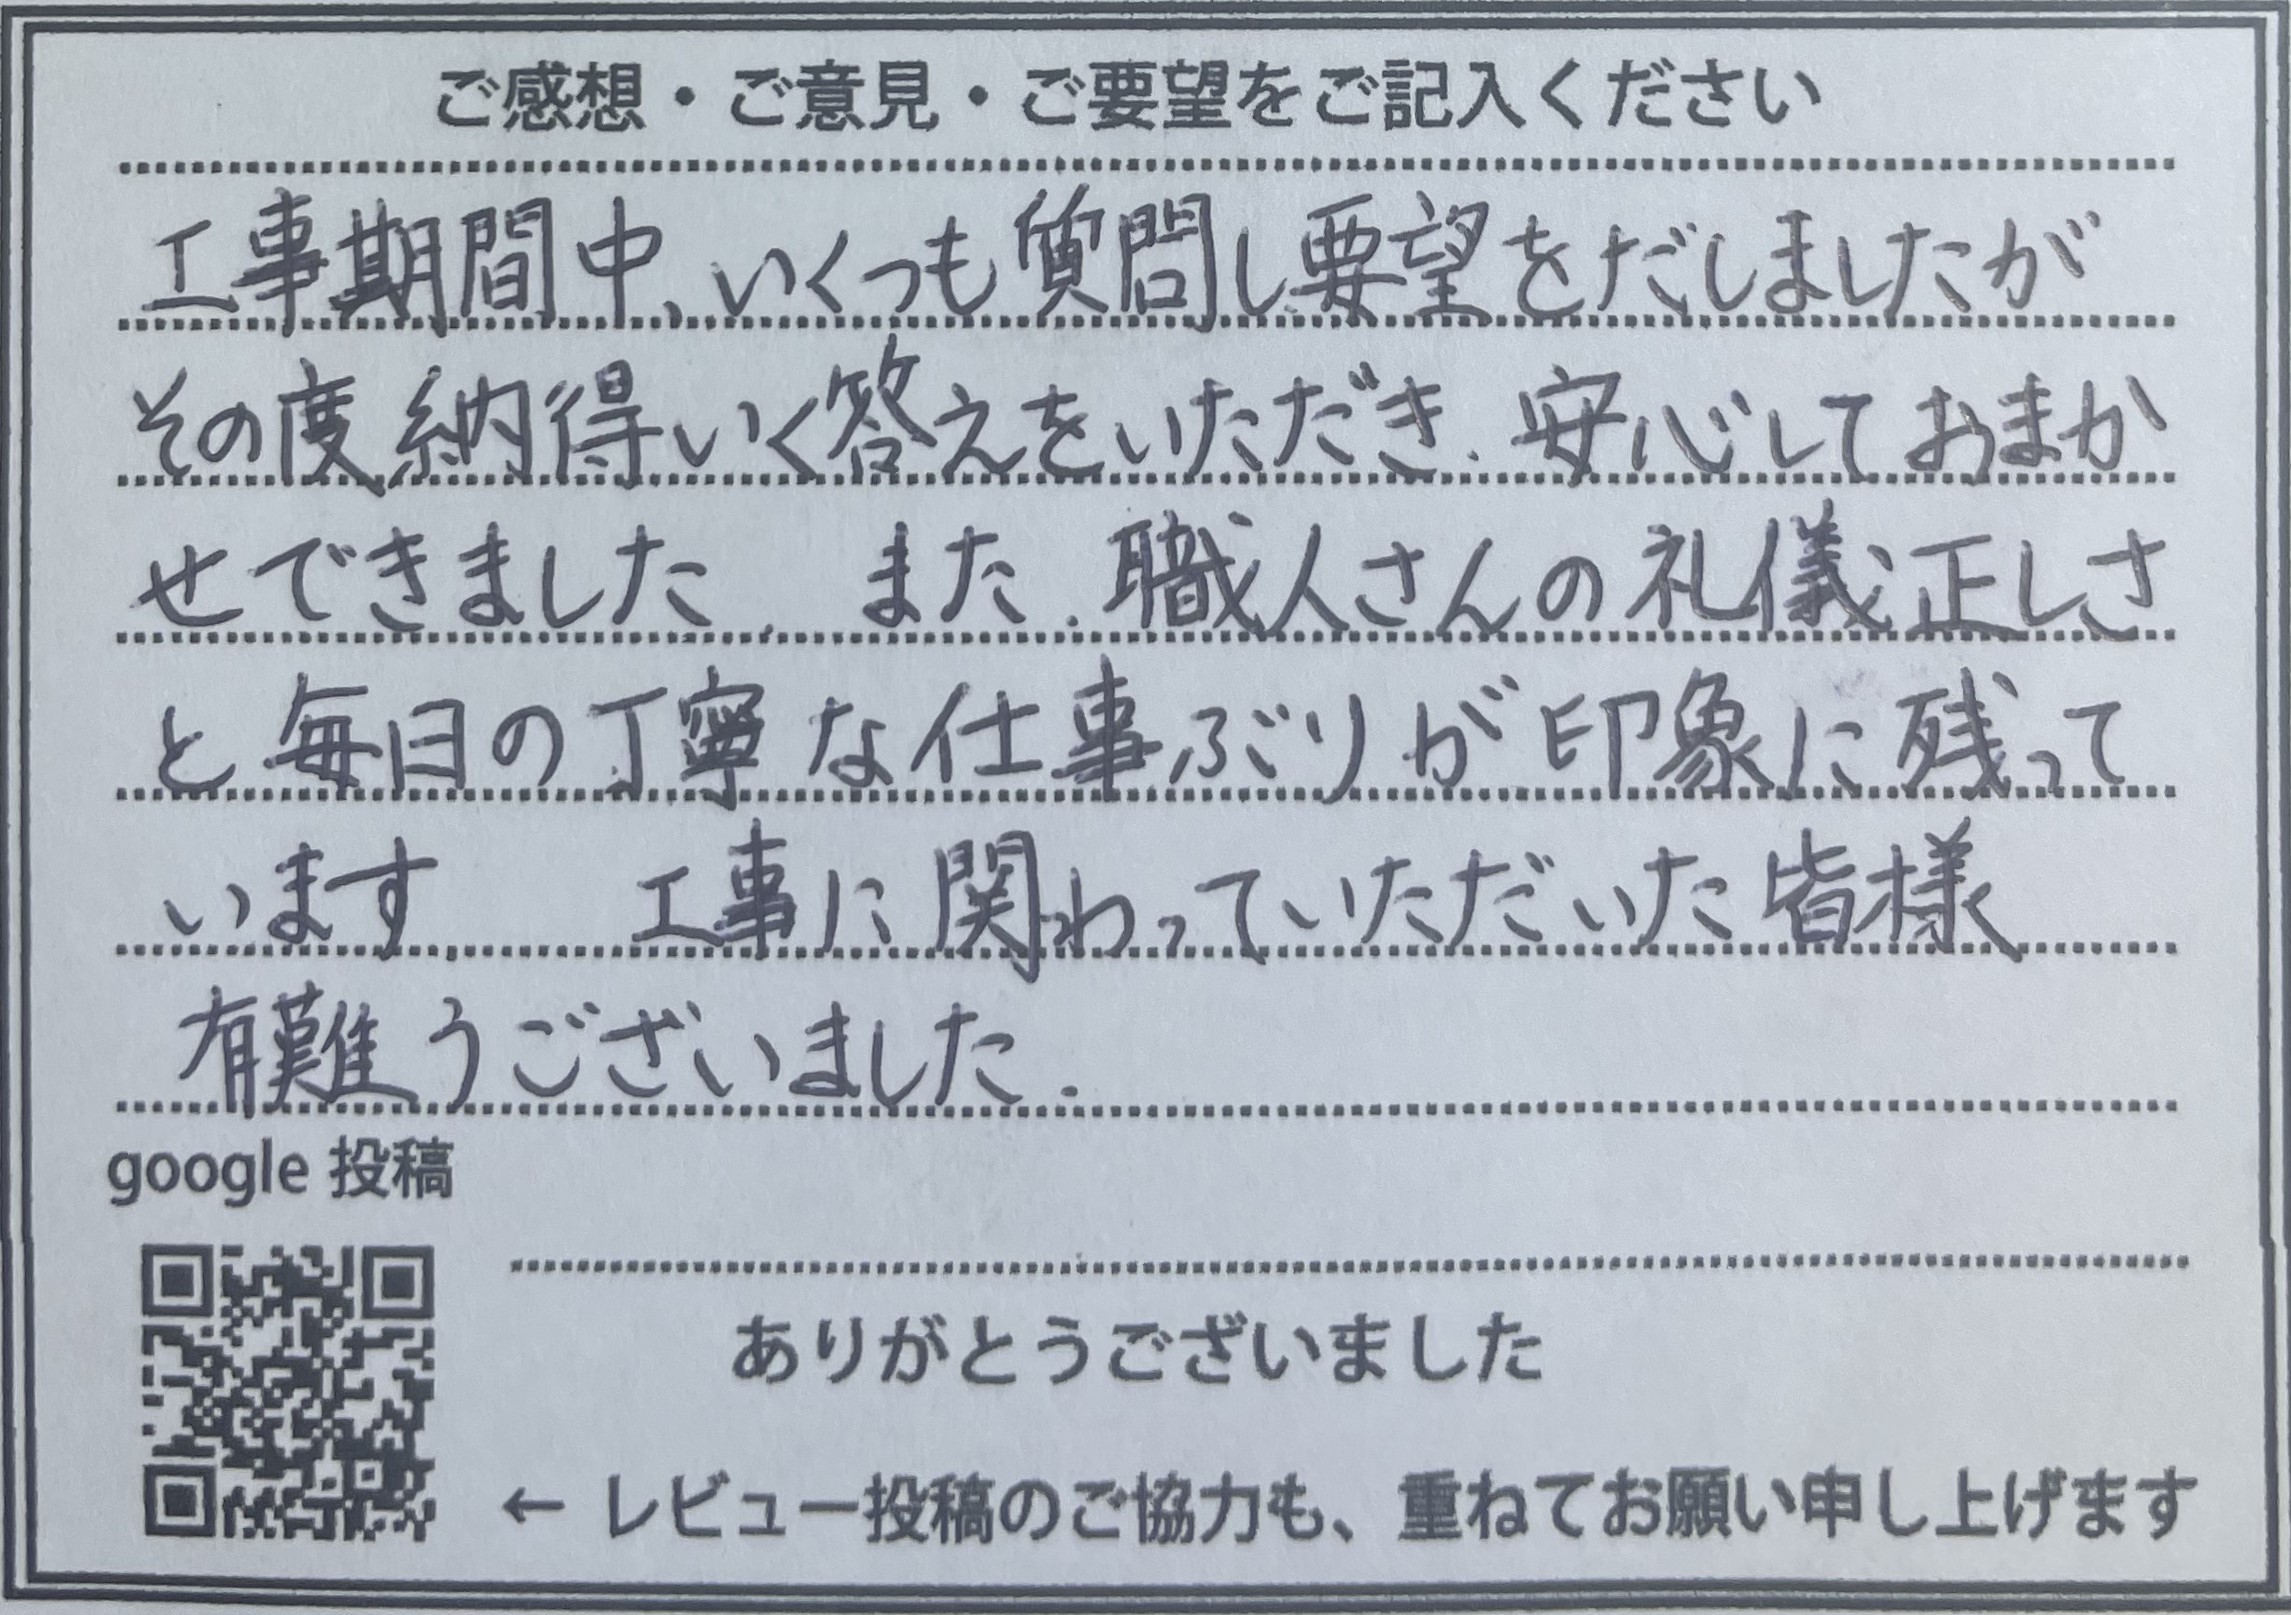 ご感想・ご意見・ご要望をご記入ください
工事期間中、いくつも質問し要望をだしましたが
その度納得いく答えをいただき、安心しておまか
せできました、また、職人さんの礼儀正しさ
と毎日の丁寧な仕事ぶりが印象に残って
います 工事に関わっていただいた皆様
有難うございました.
google 投稿
ありがとうございました
← レビュー投稿のご協力も、重ねてお願い申し上げます